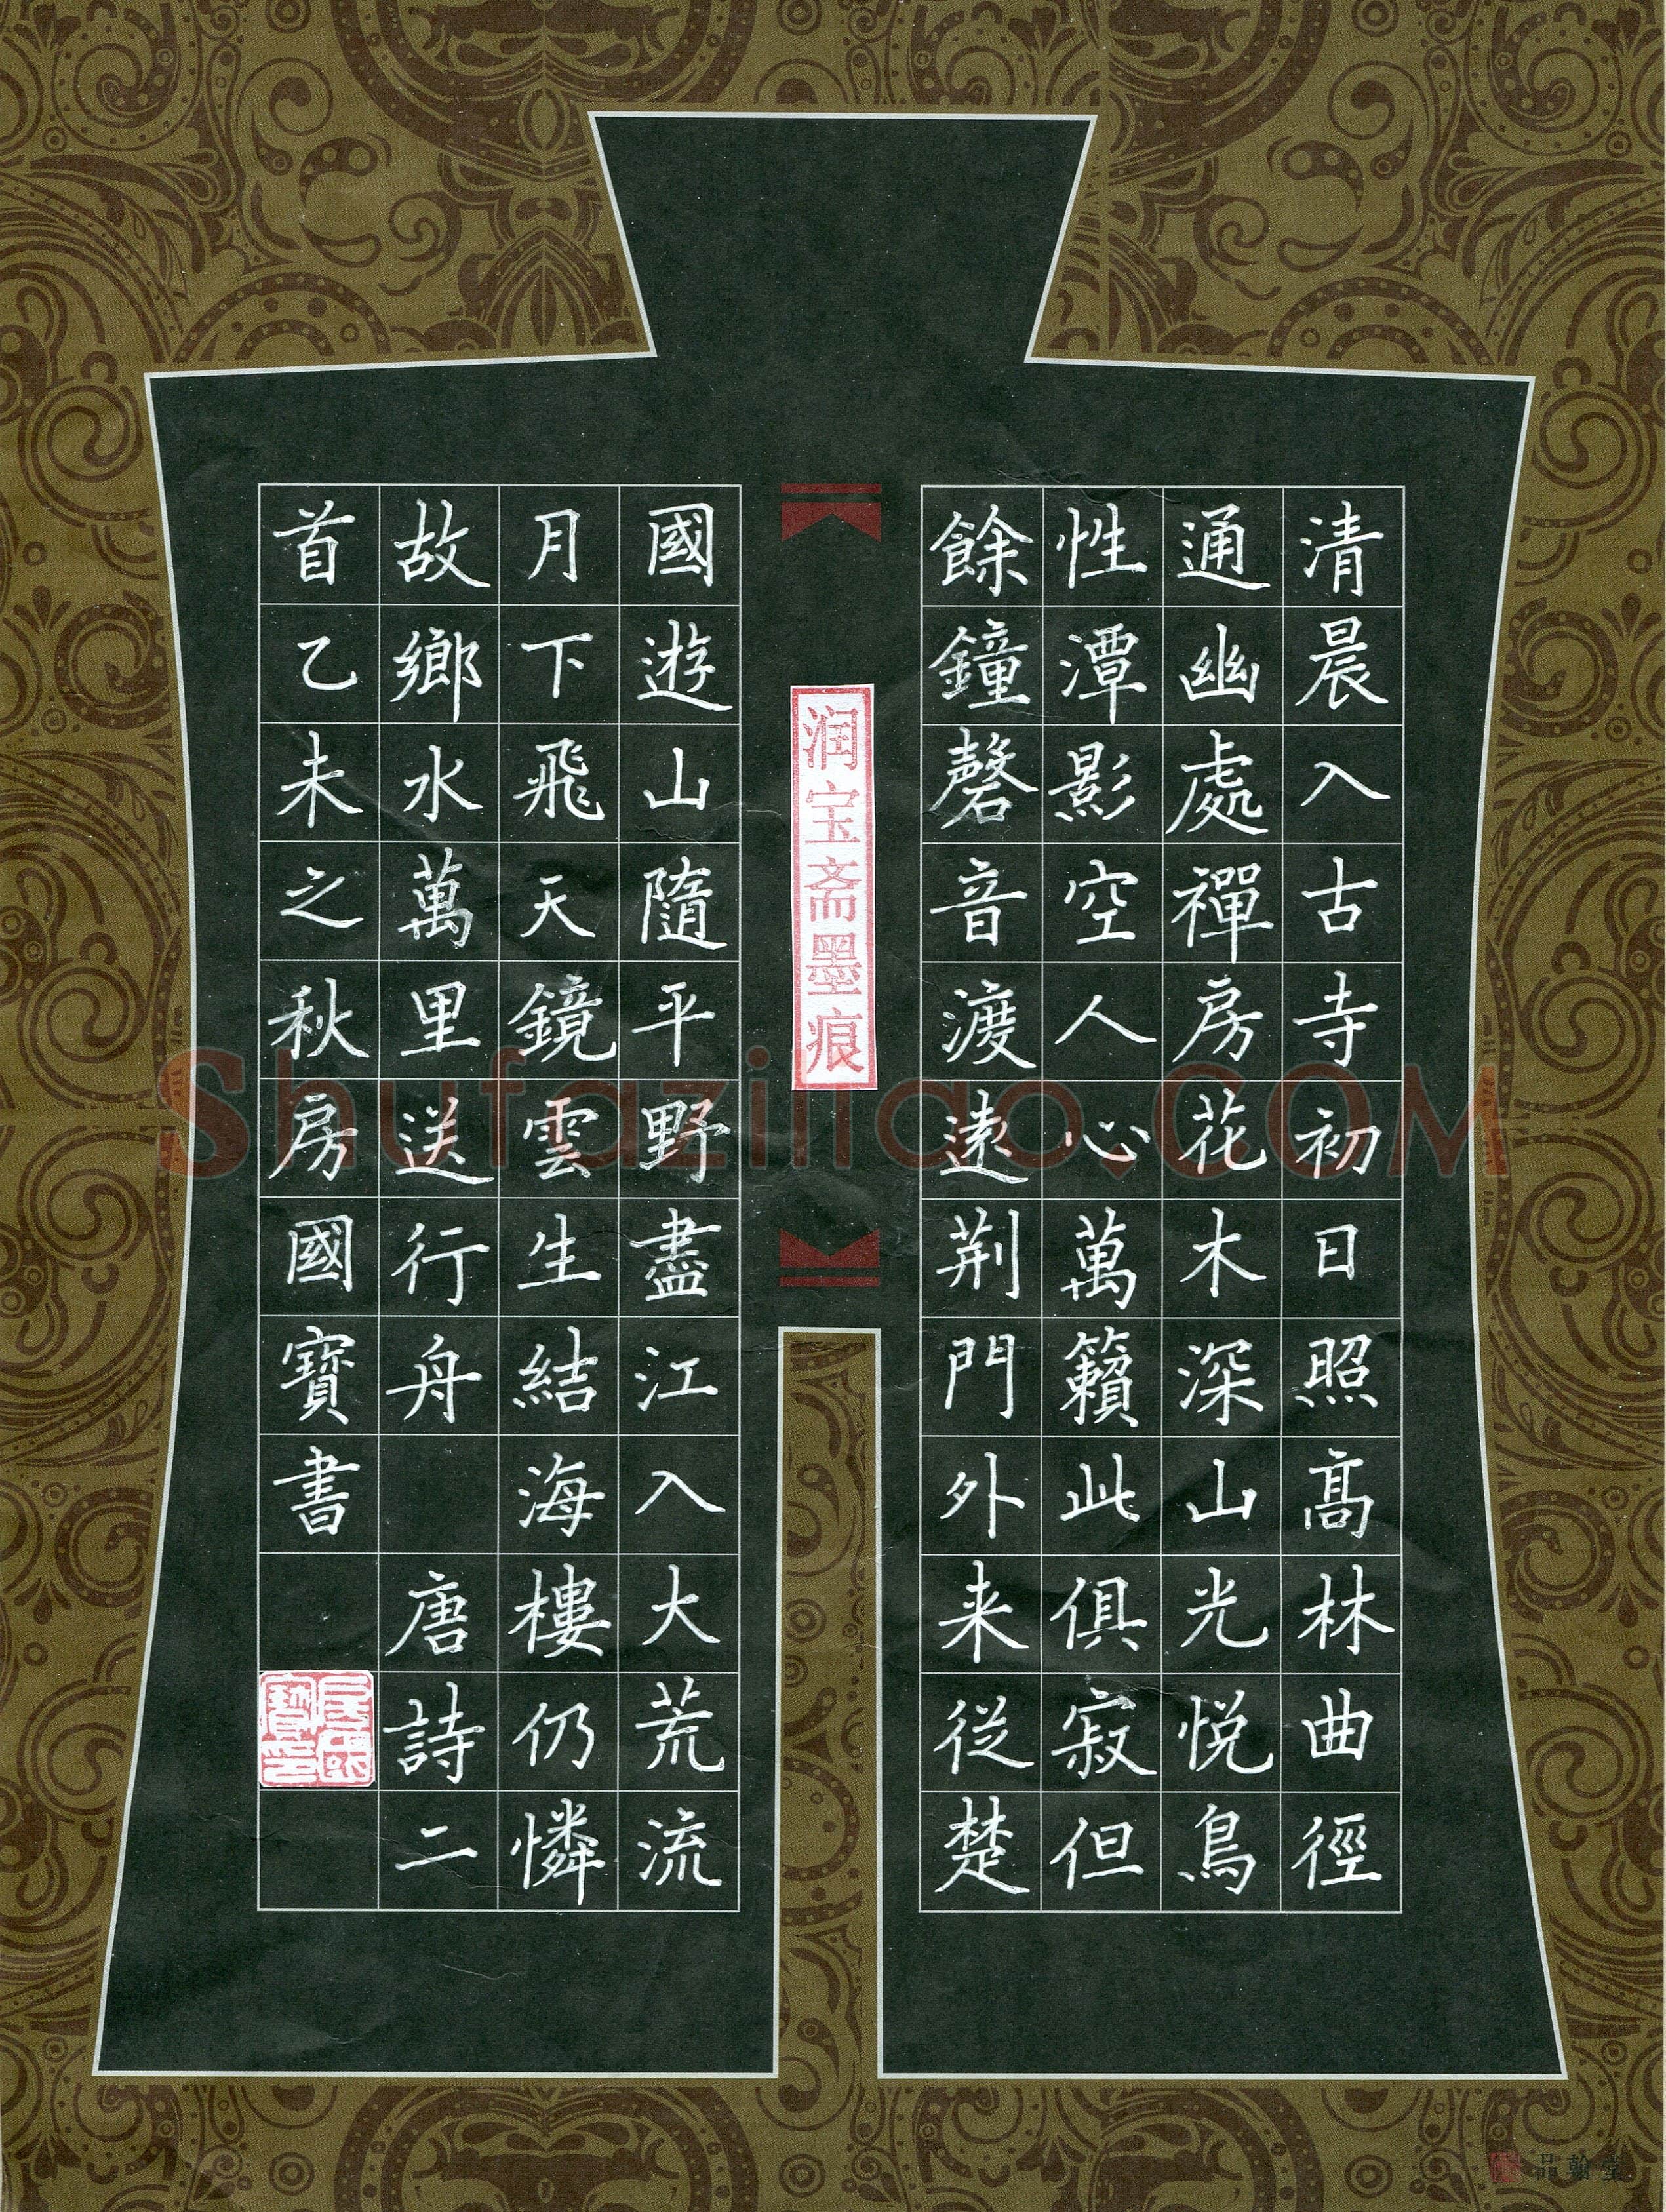 清晨入古寺初日照高林曲徑
通幽處禪房花木深山光悦鳥
性潭影空人心萬籟此俱寂但
餘鐘磬音渡遠荆門外来從楚
润宝斋墨痕
國遊山隨平野盡江入大荒流
月下飛天鏡雲生結海樓仍憐
故鄉水萬里送行舟 唐詩二
首乙未之秋房國寶書
房國寶印
Shufaziliao.COM
品翰堂